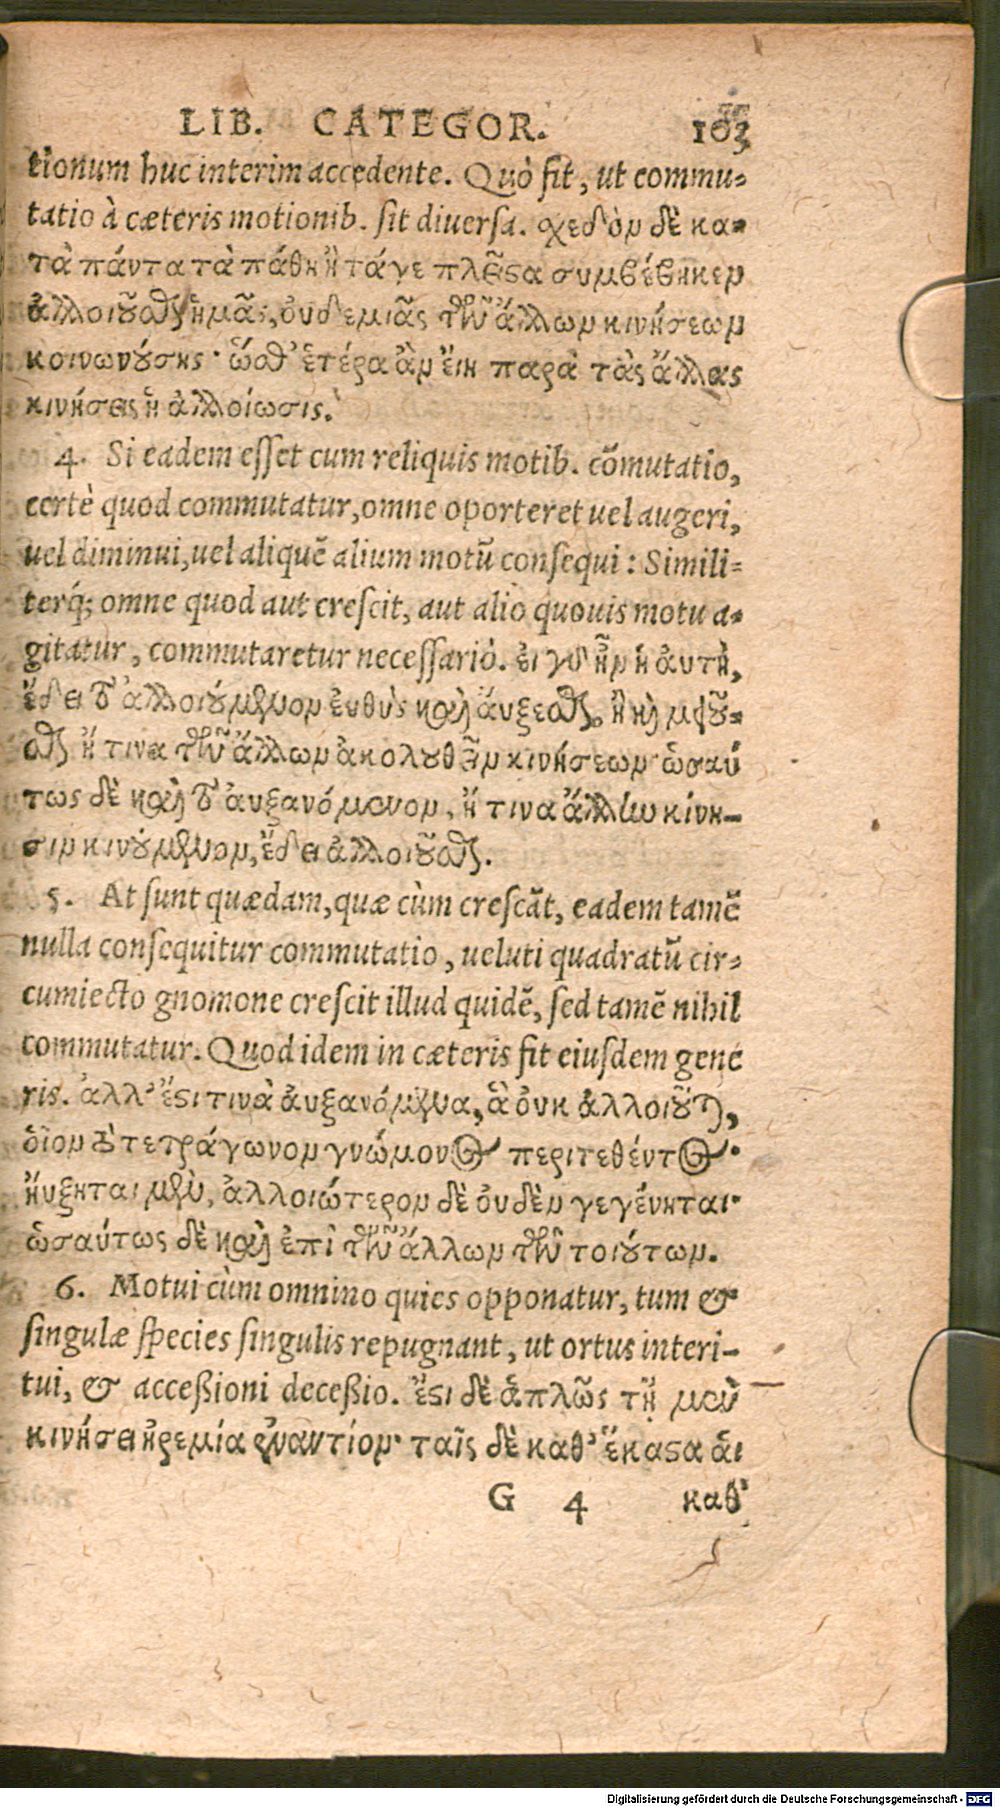 LIB. CATEGOR. 103
tionum huc interim accedente. Quò fit, ut commu-
tatio à cæteris motionib. sit diuersa. χεδὸν δὲ κα-
τὰ πάντα τὰ πάθη ἢ τάγε πλεῖϛα συμβέβηκεν
ἀλλοιοῦσθαι ἡμᾶς, οὐδεμιᾶς τῶν ἄλλων κινήσεων
κοινωνούσης· ὥσθ' ἑτέρα ἂν εἴη παρὰ τὰς ἄλλας
κινήσεις ἡ ἀλλοίωσις.
4. Si eadem esset cum reliquis motib. cõmutatio,
certè quod commutatur, omne oporteret uel augeri,
uel diminui, uel aliquẽ alium motũ consequi: Simili-
terq́; omne quod aut crescit, aut alio quouis motu a-
gitatur, commutaretur necessariò. εἰ γὰρ ἦν ἡ αὐτὴ,
ἔδει τὸ ἀλλοιούμενον εὐθὺς καὶ αὔξεσθαι, ἢ καὶ μειοῦ-
σθαι ἤ τινα τῶν ἄλλων ἀκολουθεῖν κινήσεων· ὡσαύ
τως δὲ καὶ τὸ αὐξανόμενον, ἤ τινα ἄλλην κίνη-
σιν κινούμενον, ἔδει ἀλλοιοῦσθαι.
5. At sunt quædam, quæ cùm crescãt, eadem tamẽ
nulla consequitur commutatio, ueluti quadratũ cir-
cumiecto gnomone crescit illud quidẽ, sed tamẽ nihil
commutatur. Quod idem in cæteris fit eiusdem gene
ris. ἀλλ' ἔϛι τινὰ αὐξανόμενα, ἃ οὐκ ἀλλοιοῦται,
οἷον τὸ τετράγωνον γνώμονος περιτεθέντος·
ηὔξηται μὲν, ἀλλοιώτερον δὲ οὐδὲν γεγένηται·
ὡσαύτως δὲ καὶ ἐπὶ τῶν ἄλλων τῶν τοιούτων.
6. Motui cùm omnino quies opponatur, tum &
singulæ species singulis repugnant, ut ortus interi-
tui, & accessioni decessio. ἔϛι δὲ ἁπλῶς τῇ μὲν
κινήσει ἠρεμία ἐναντίον· ταῖς δὲ καθ' ἕκαϛα αἱ
G 4 καθ'
Digitalisierung gefördert durch die Deutsche Forschungsgemeinschaft - DFG